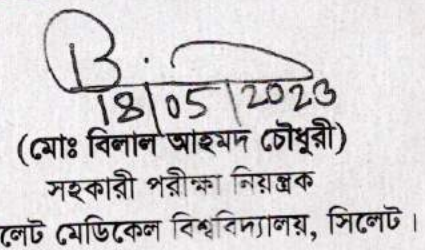 B.
18/05/2023
(মোঃ বিলাল আহমদ চৌধুরী)
সহকারী পরীক্ষা নিয়ন্ত্রক
লেট মেডিকেল বিশ্ববিদ্যালয়, সিলেট।